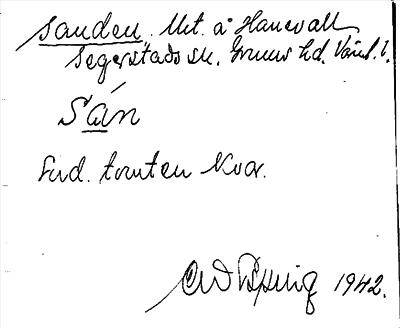 Sanden. Utt. å Hanevall
Segerstads sn. Grums hd. Värml. l.
Sán
End. tomten kvar.
1942.